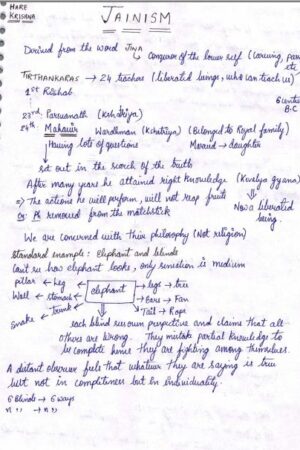 HARE
KRISHNA
JAINISM
Derived from the word JINA
Conquror of the lower self (
etc
TIRTHANKARAS → 24 teachers (liberated beings, who can teach us)
1st Rishab
6 century
B.C
23rd. Parsvanath (Kshtriya)
24th. Mahavir Wardhman (Kshtriya) (Belonged to Royal family)
Having lots of questions Married → daughter
set out in the search of the truth
After many years he attained right knowledge (Kewalya gyana)
⇒ The actions he will perform, will not reap fruits
Now a liberated
being.
removed from the matchstick
We are concerned with their philosophy (Not religion)
Standard example: Elephant and blinds
Can't see how elephant looks, only sensation is medium
pillar ← leg ← elephant → legs → tree
Wall ← stomach ← → Ears → Fan
Snake ← Trunk → Tail → Rope
each blind has own perspective and claims that all
others are wrong. They mistake partial knowledge to
be complete hence they are fighting among themselves.
A distant observer feels that whatever they are saying is true
but not in completeness but in individuality.
6 blinds → 6 ways
n " → n "